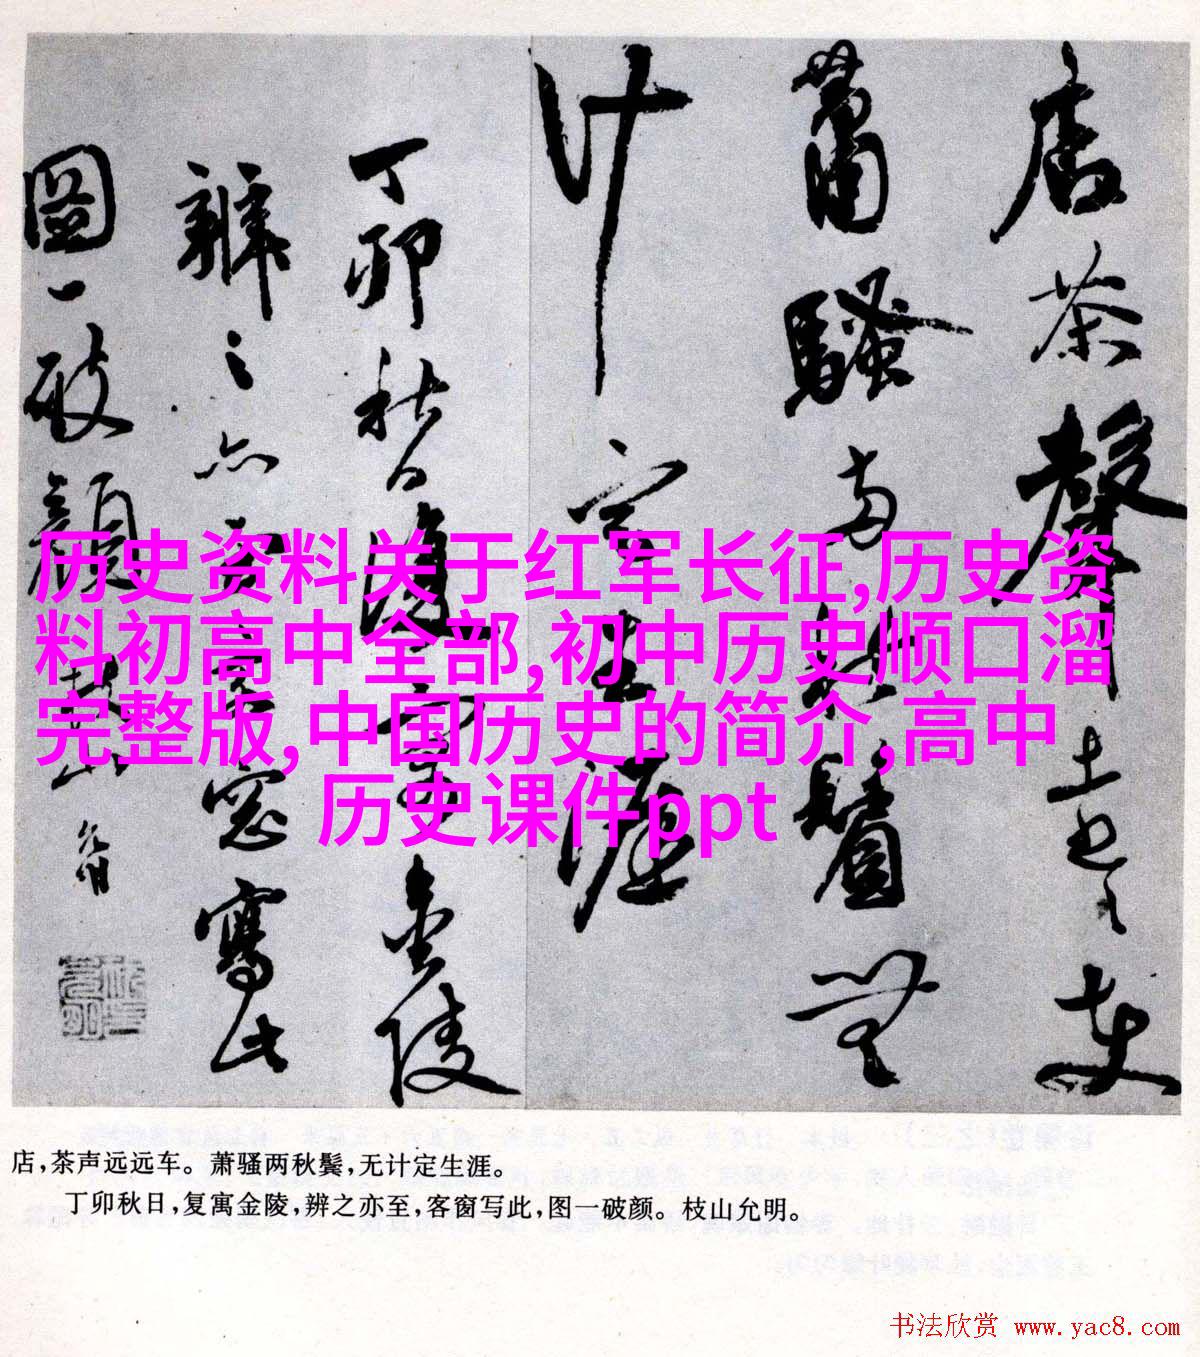 店茶聲遠遠車
蕭騷兩秋鬢無
計定生涯
丁卯秋日復寓金陵
辨之亦至客窓寫此
圖一破顔枝山允明
历史资料关于红军长征,历史资
料初高中全部,初中历史顺口溜
完整版,中国历史的简介,高中
历史课件ppt
店,茶声远远车。萧骚两秋鬓,无计定生涯。
丁卯秋日,复寓金陵,辨之亦至,客窗写此,图一破颜。枝山允明。
书法欣赏 www.yac8.com